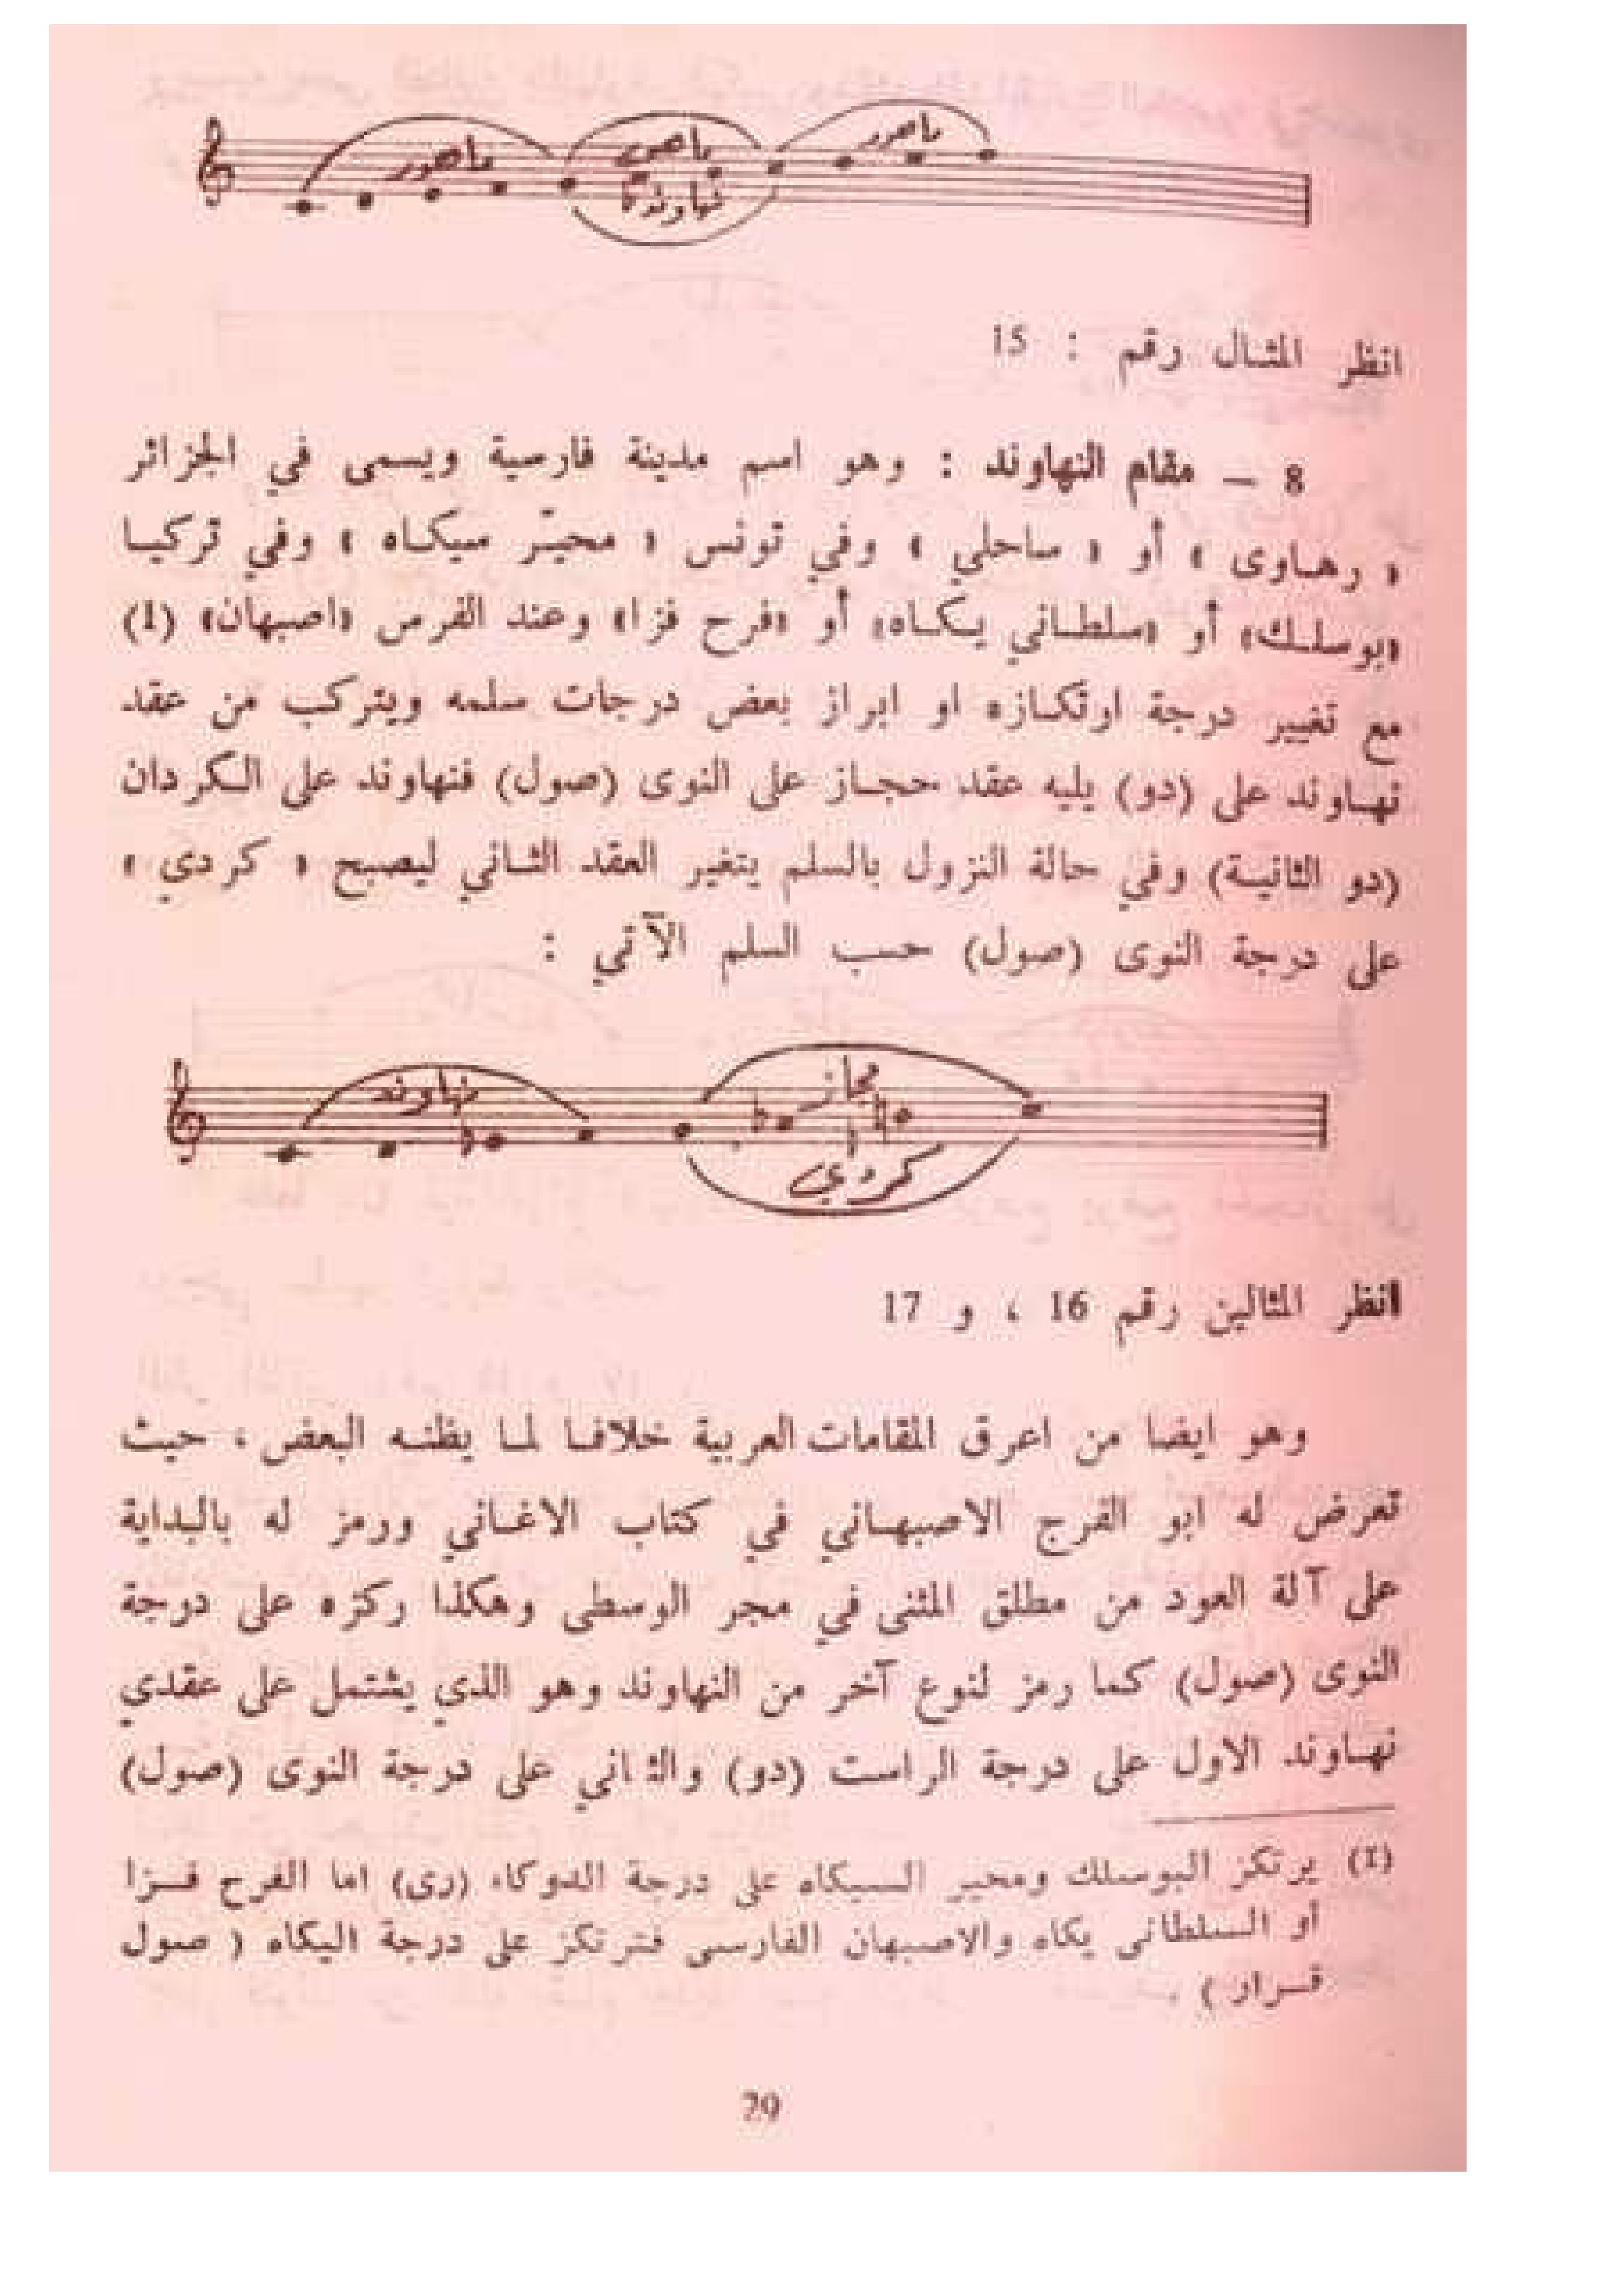 ماهور
ماهور
ماهور
نهاوند
انظر المثال رقم : 15
8 — مقام النهاوند : وهو اسم مدينة فارسية ويسمى في الجزائر
« رهاوى » أو « ساحلي » وفي تونس « محيّر سيكاه » وفي تركيا
«بوسلك» أو «سلطاني يكاه» أو «فرح فزا» وعند الفرس «اصبهان» (1)
مع تغيير درجة ارتكازه او ابراز بعض درجات سلمه ويتركب من عقد
نهاوند على (دو) يليه عقد حجاز على النوى (صول) فنهاوند على الكردان
(دو الثانية) وفي حالة النزول بالسلم يتغير العقد الثاني ليصبح « كردي »
على درجة النوى (صول) حسب السلم الآتي :
نهاوند
حجاز
كردي
انظر المثالين رقم 16 ، و 17
وهو ايضا من اعرق المقامات العربية خلافا لما يظنه البعض ، حيث
تعرض له ابو الفرج الاصبهاني في كتاب الاغاني ورمز له بالبداية
على آلة العود من مطلق المثنى في مجر الوسطى وهكذا ركزه على درجة
النوى (صول) كما رمز لنوع آخر من النهاوند وهو الذي يشتمل على عقدي
نهاوند الاول على درجة الراست (دو) والثاني على درجة النوى (صول)
(1) يرتكز البوسلك ومحير السيكاه على درجة الدوكاه (رى) اما الفرح فزا
أو السلطانى يكاه والاصبهان الفارسى فترتكز على درجة اليكاه ( صول
قرار ) .
29